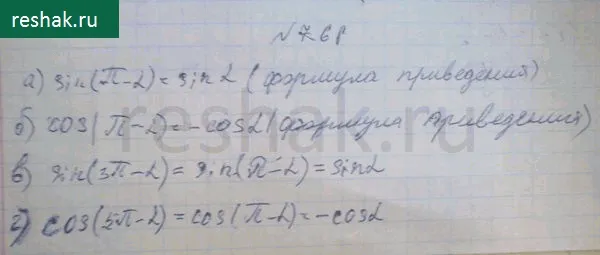 reshak.ru
№768
а) sin(π-α)= sin α (формула приведения)
б) cos(π-α)= -cosα (формула приведения)
в) sin(3π-α)= sin(π-α)= sinα
г) cos(5π-α)= cos(π-α)= -cosα
reshak.ru